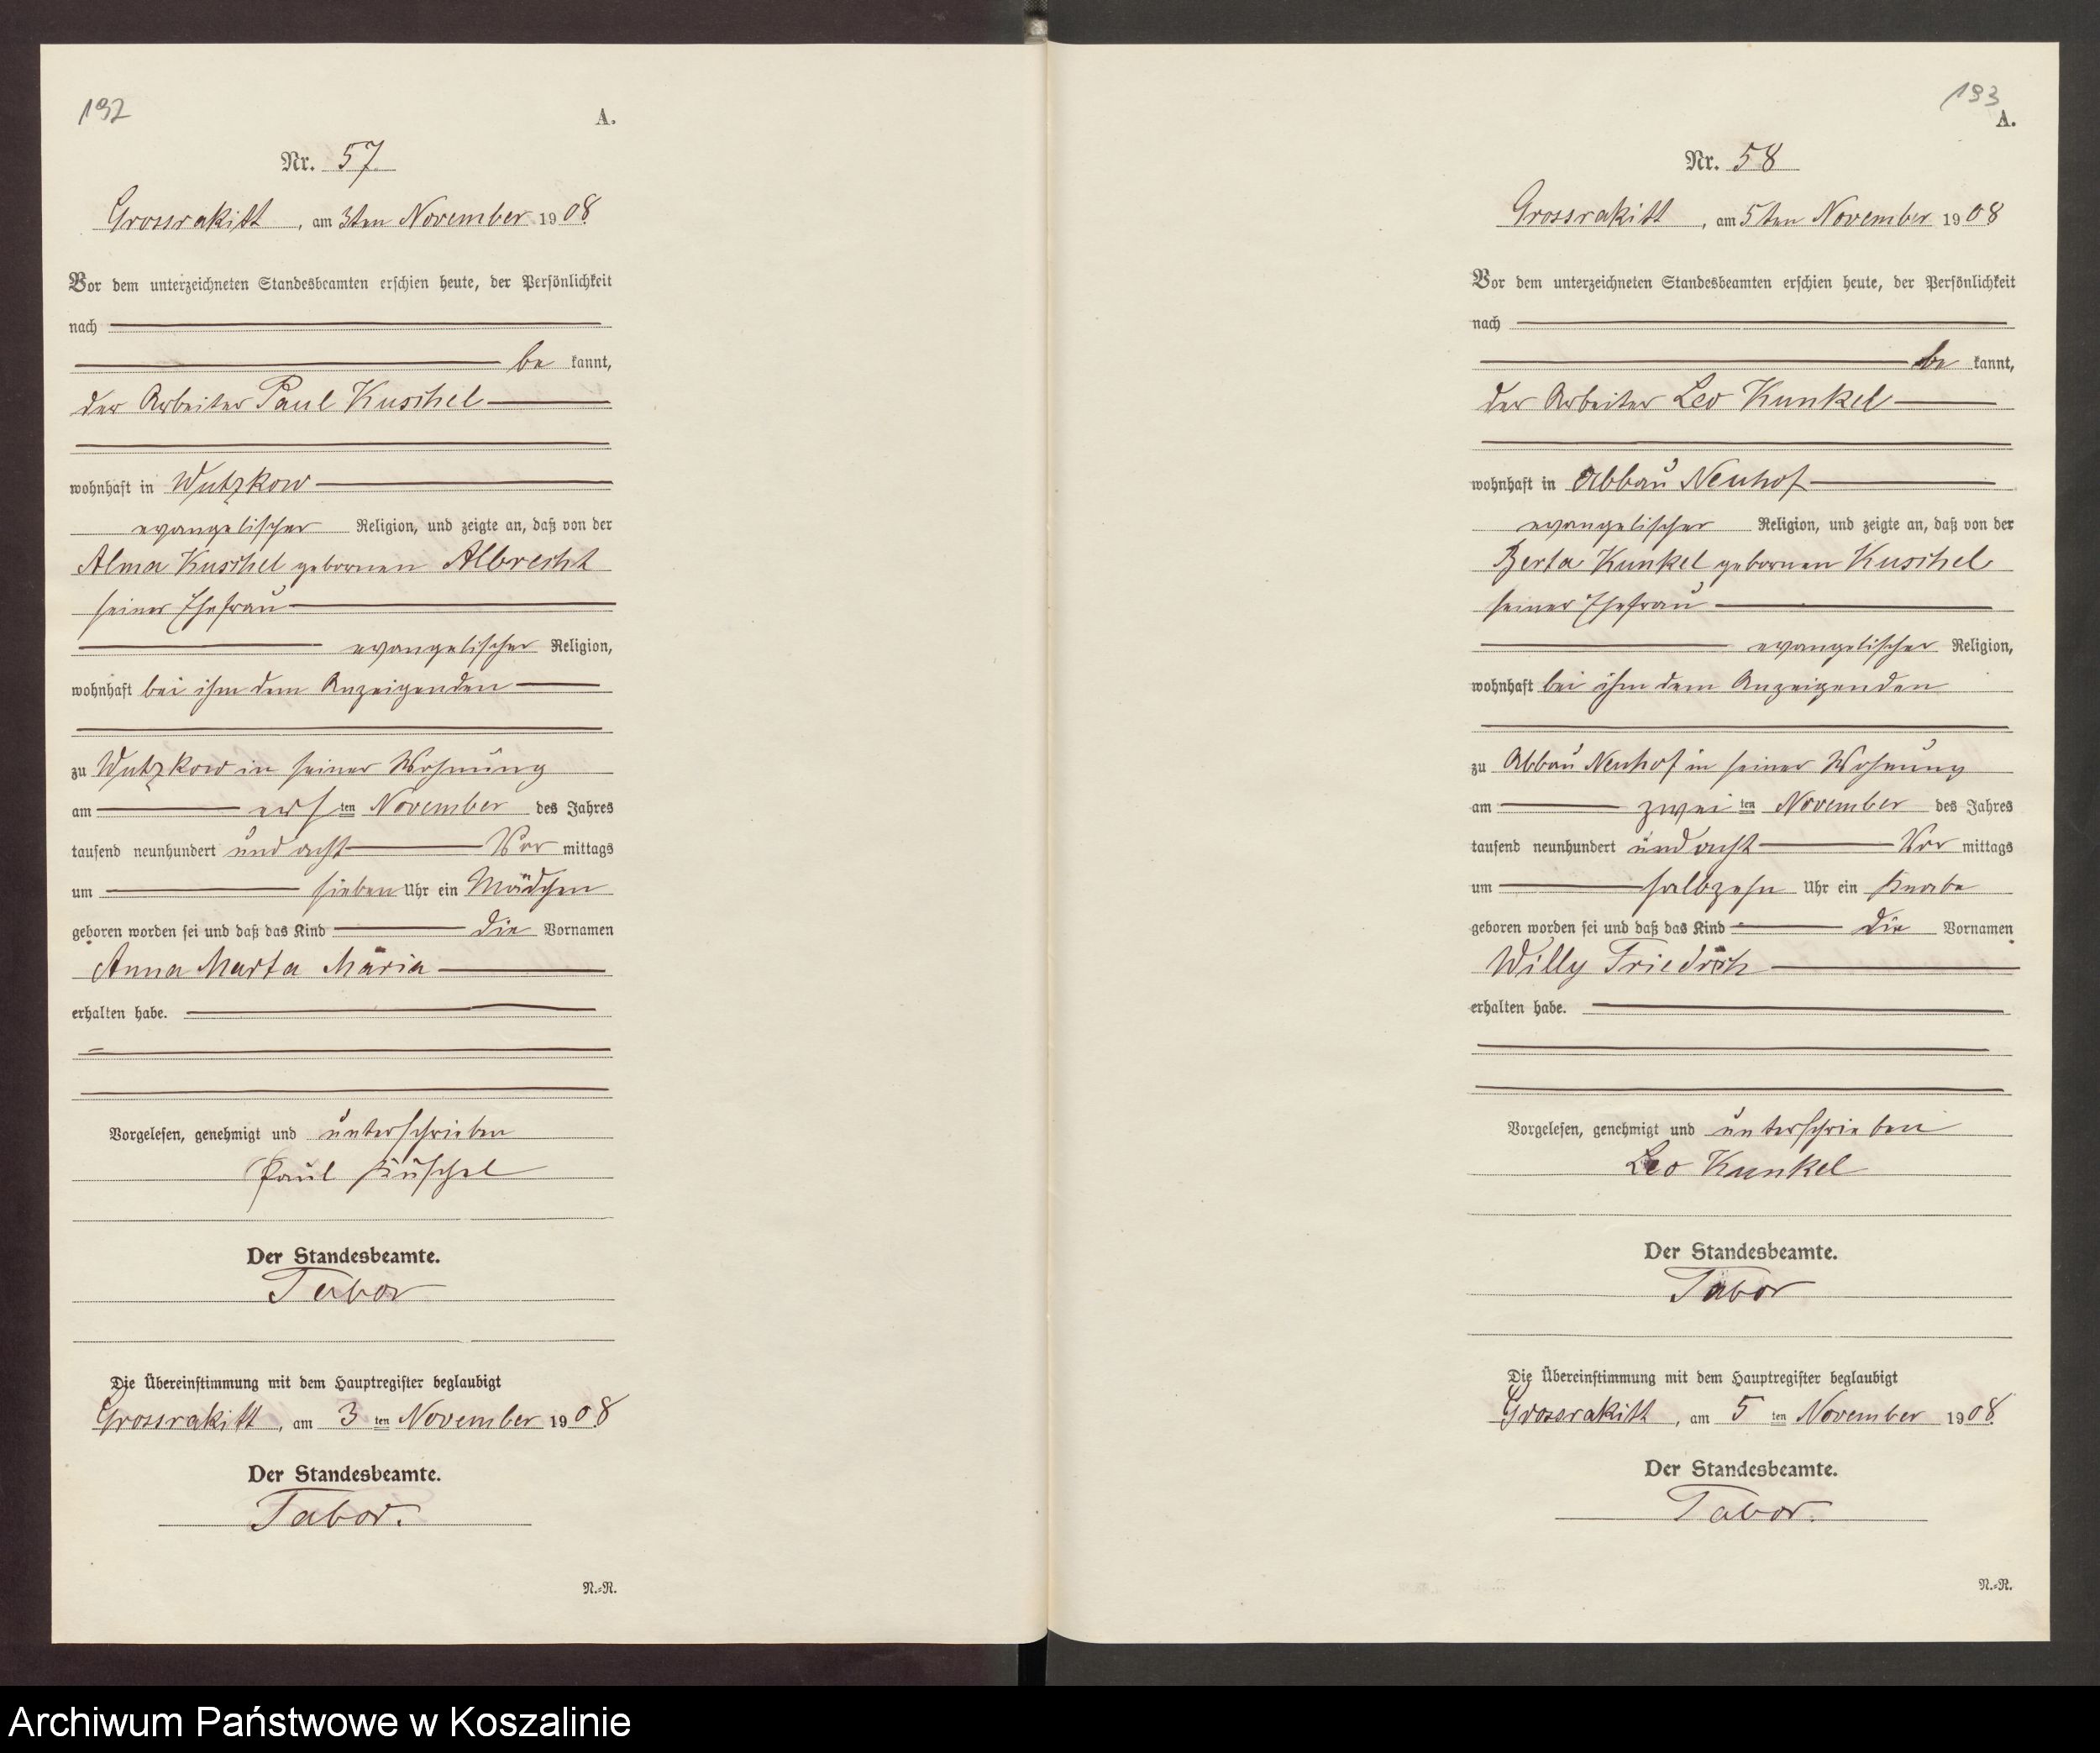 192
A.
Nr. 57
Grossrakitt, am 3ten November 1908
Vor dem unterzeichneten Standesbeamten erschien heute, der Persönlichkeit
nach
be kannt,
der Arbeiter Paul Kuschel
wohnhaft in Wutzkow
evangelischer Religion, und zeigte an, daß von der
Alma Kuschel gebornen Albrecht
seiner Ehefrau
evangelischer Religion,
wohnhaft bei ihm dem Anzeigenden
zu Wutzkow in seiner Wohnung
am ersten November des Jahres
tausend neunhundert und acht Vor mittags
um sieben Uhr ein Mädchen
geboren worden sei und daß das Kind die Vornamen
Anna Marta Maria
erhalten habe.
Vorgelesen, genehmigt und unterschrieben
Paul Kuschel
Der Standesbeamte.
Tabor
Die Übereinstimmung mit dem Hauptregister beglaubigt
Grossrakitt, am 3 ten November 1908
Der Standesbeamte.
Tabor.
N.=R.
193
A.
Nr. 58
Grossrakitt, am 5ten November 1908
Vor dem unterzeichneten Standesbeamten erschien heute, der Persönlichkeit
nach
be kannt,
der Arbeiter Leo Kunkel
wohnhaft in Abbau Neuhof
evangelischer Religion, und zeigte an, daß von der
Berta Kunkel gebornen Kuschel
seiner Ehefrau
evangelischer Religion,
wohnhaft bei ihm dem Anzeigenden
zu Abbau Neuhof in seiner Wohnung
am zwei ten November des Jahres
tausend neunhundert und acht Vor mittags
um halbzehn Uhr ein Knabe
geboren worden sei und daß das Kind die Vornamen
Willy Friedrich
erhalten habe.
Vorgelesen, genehmigt und unterschrieben
Leo Kunkel
Der Standesbeamte.
Tabor
Die Übereinstimmung mit dem Hauptregister beglaubigt
Grossrakitt, am 5 ten November 1908.
Der Standesbeamte.
Tabor.
N.=R.
Archiwum Państwowe w Koszalinie